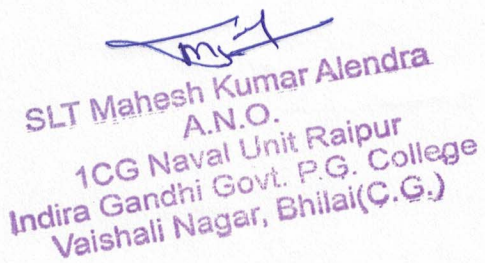 SLT Mahesh Kumar Alendra
A.N.O.
1CG Naval Unit Raipur
Indira Gandhi Govt. P.G. College
Vaishali Nagar, Bhilai(C.G.)